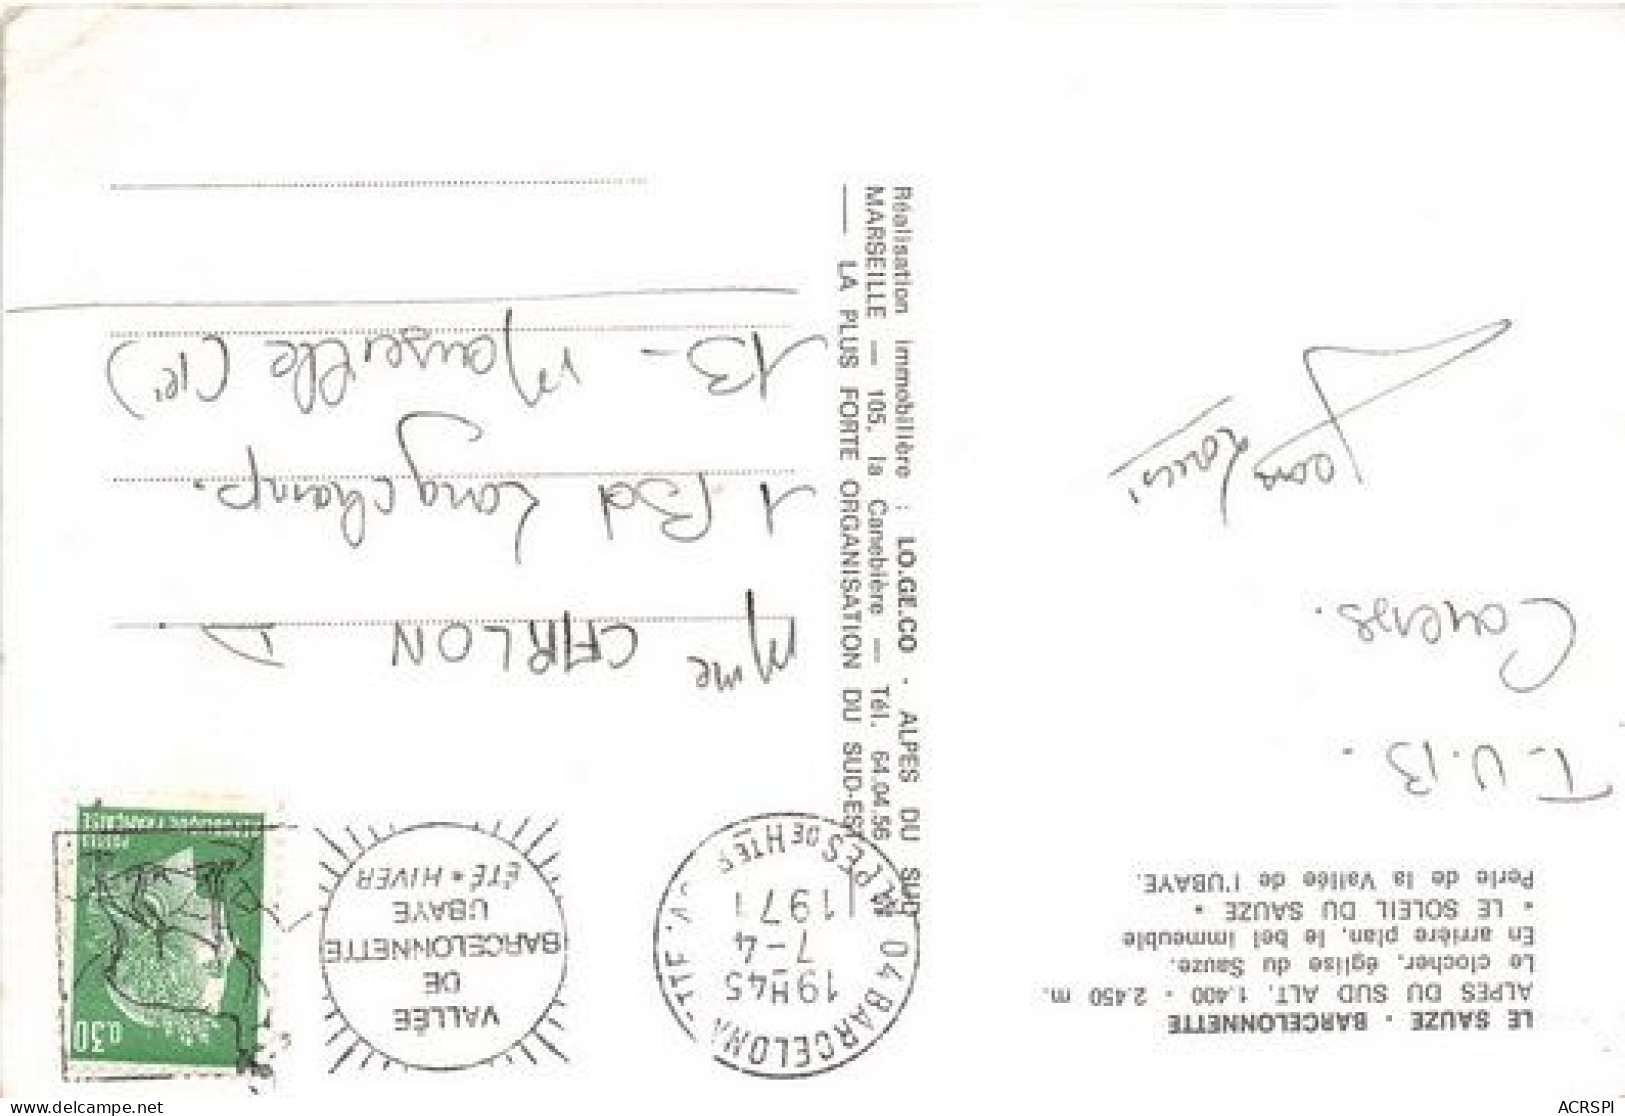 LE SAUZE - BARCELONNETTE
ALPES DU SUD ALT. 1.400 - 2.450 m.
Le clocher, église du Sauze.
En arrière plan, le bel immeuble
* LE SOLEIL DU SAUZE *
Perle de la Vallée de l'UBAYE.
T.V.B.
Jean Louis
Réalisation immobilière : LO.GE.CO - ALPES DU SUD
MARSEILLE — 105, la Canebière — Tél. 64.04.56
—— LA PLUS FORTE ORGANISATION DU SUD-EST
04 BARCELONNETTE
ALPES DE HTE
19H45
7-4
1971
VALLÉE
DE
BARCELONNETTE
UBAYE
ÉTÉ * HIVER
0,30
POSTES
REPUBLIQUE FRANÇAISE
Mme CARLON D.
1 Bd Longchamp.
13 - Marseille (1er)
ACRSPI